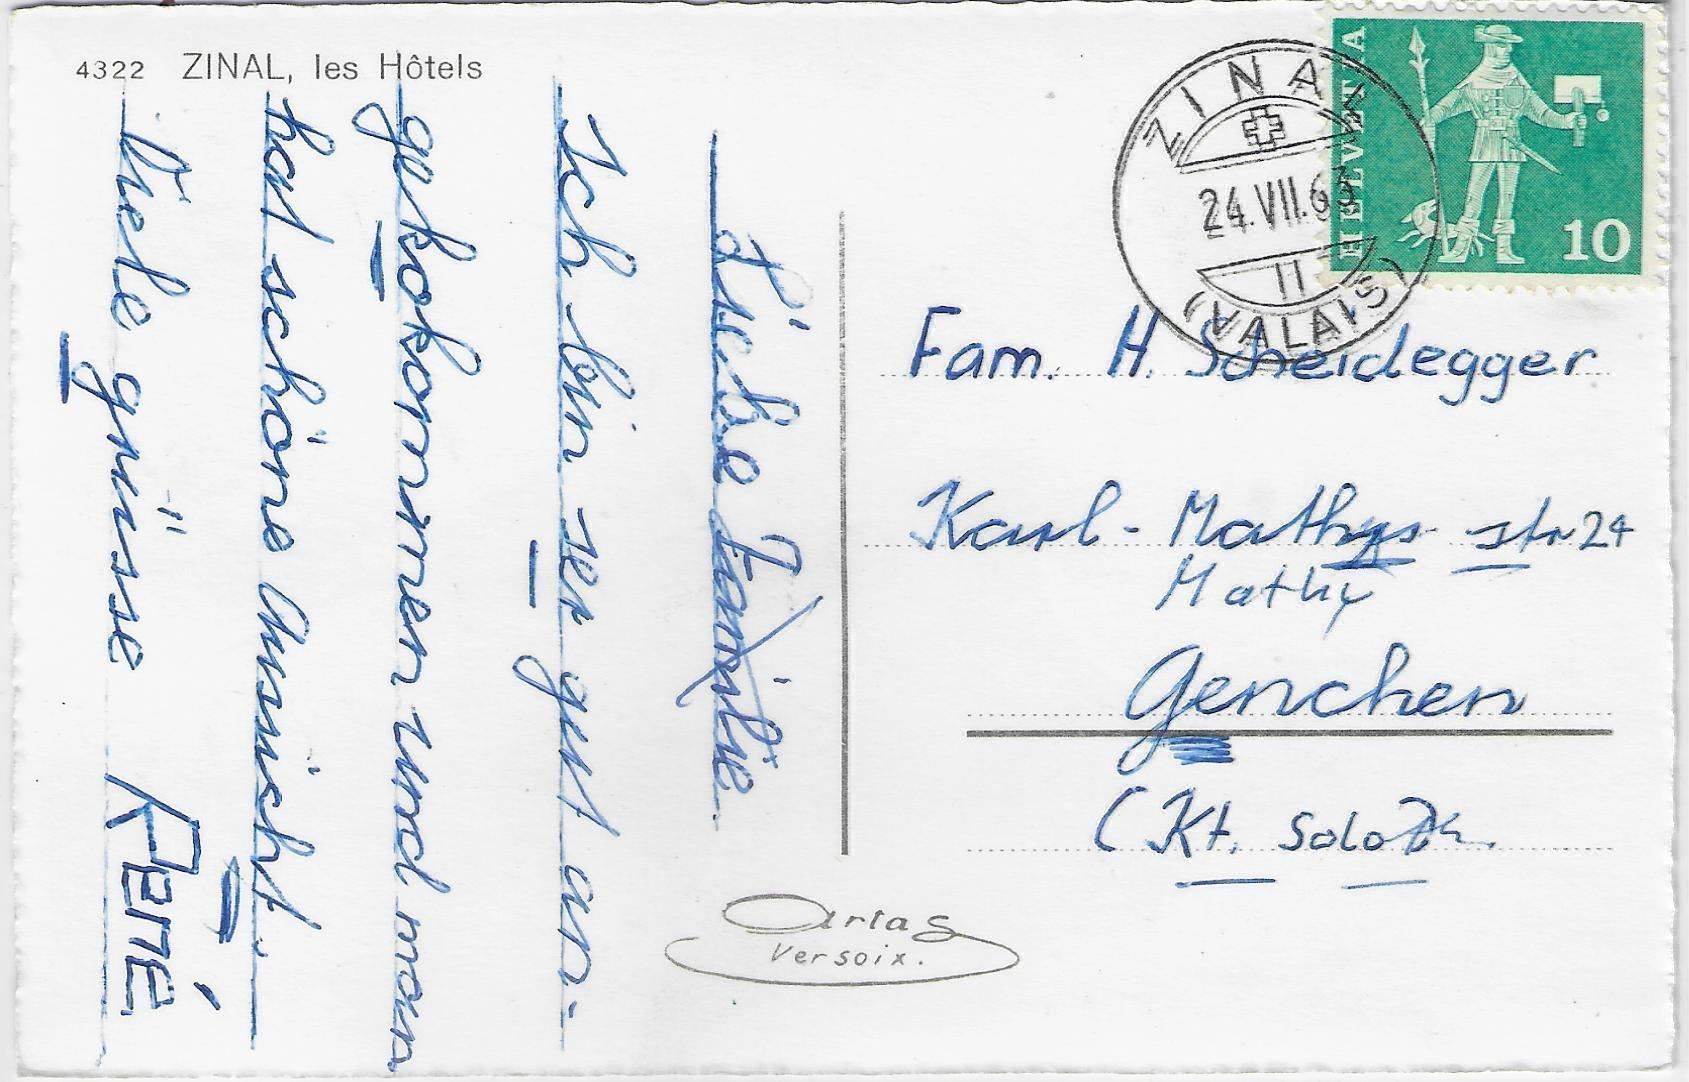 4322 ZINAL, les Hôtels
Liebe Familie
Ich bin ser gut an-
gekokommen und man
hat schöne Aussicht.
Viele grüsse RENÉ
ZINAL
24.VII.63
II
(VALAIS)
HELVETIA
10
Fam. H. Scheidegger
Karl-Mathys-str 24
Mathy
Genchen
(Kt. Soloth.
Artas
Versoix.